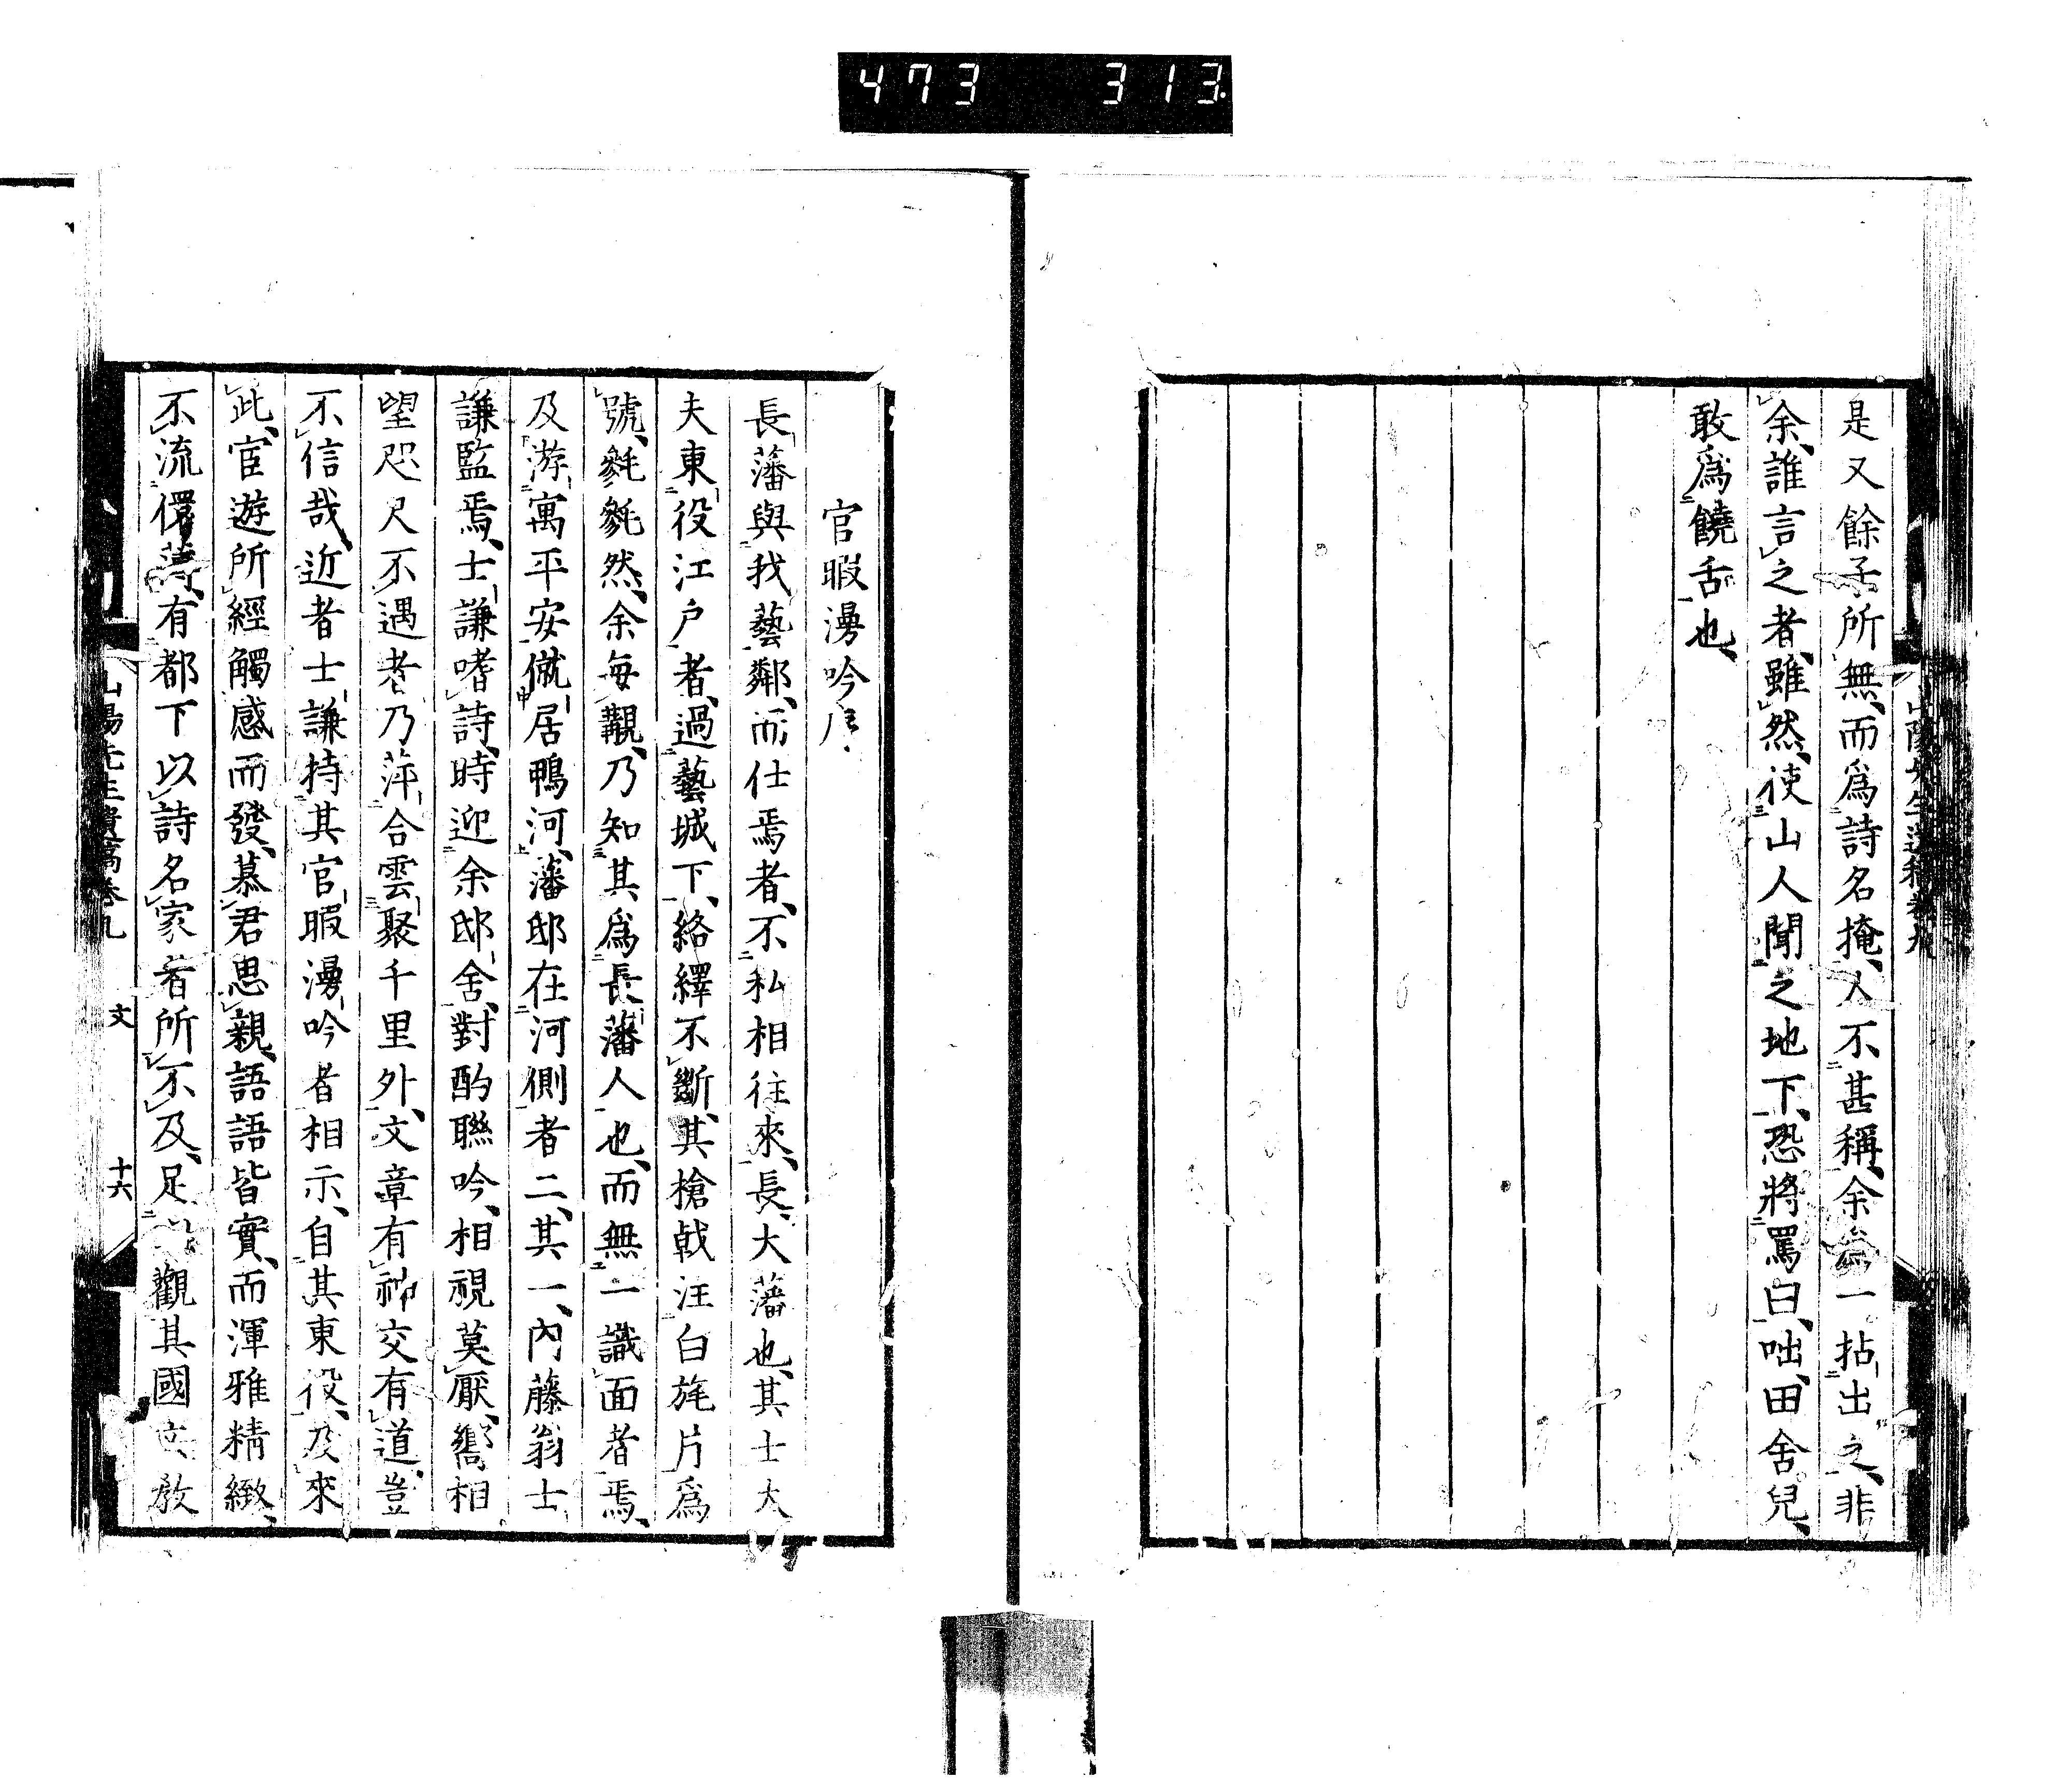 473 313
是又餘子所無、而爲詩名掩、人不甚稱、余為一拈出之、非
余、誰言之者、雖然、使山人聞之地下、恐將罵曰、咄、田舍兒、
敢爲饒舌也、
官暇漫吟序
長藩與我藝鄰、而仕焉者、不私相往來、長、大藩也、其士大
夫東役江戸者、過藝城下、絡繹不斷、其槍戟汪白旄片爲
號、毿毿然、余每覯、乃知其爲長藩人也、而無一識面者焉、
及游寓平安、僦居鴨河、藩邸在河側者二、其一、內藤翁士
謙監焉、士謙嗜詩、時迎余邸舍、對酌聯吟、相視莫厭、嚮相
望咫尺不遇者、乃萍合雲聚千里外、文章有神交有道、豈
不信哉、近者士謙持其官暇漫吟者相示、自其東役、及來
此、宦遊所經觸感而發、慕君思親、語語皆實、而渾雅精緻、
不流儇薄、有都下以詩名家者所不及、足觀其國教
山陽先生遺稿卷九 文 十六